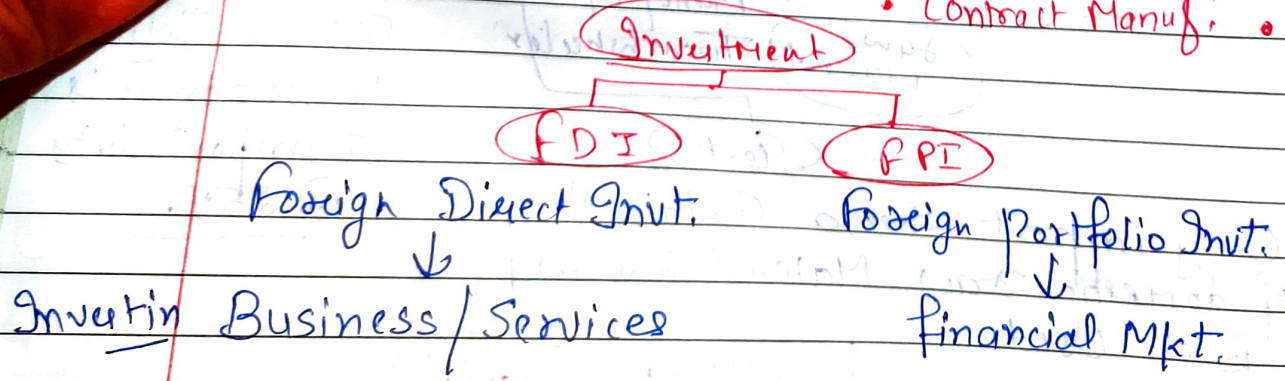 • Contract Manuf. •
Investment
FDI FPI
Foreign Direct Invt. Foreign Portfolio Invt.
↓ ↓
Invest in Business/Services financial Mkt.